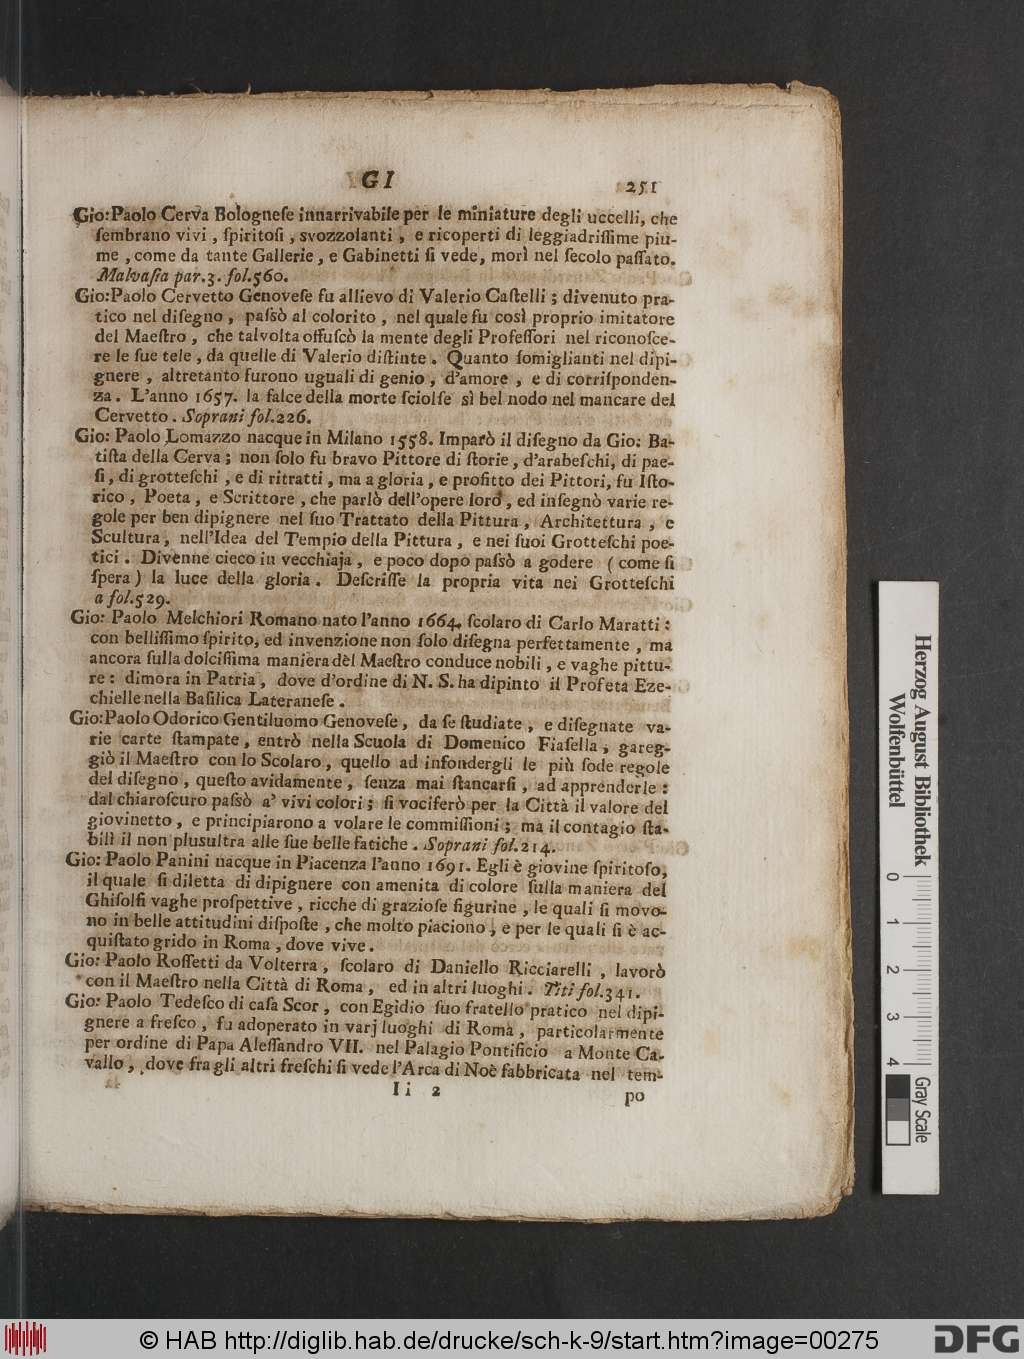 GI
251
Gio:Paolo Cerva Bologneſe innarrivabile per le miniature degli uccelli, che
ſembrano vivi , ſpiritoſi , svozzolanti , e ricoperti di leggiadriſſime piu-
me , come da tante Gallerie , e Gabinetti ſi vede, morì nel ſecolo paſſato.
Malvaſia par.3. fol.560.
Gio:Paolo Cervetto Genoveſe fu allievo di Valerio Caſtelli ; divenuto pra-
tico nel diſegno , paſsò al colorito , nel quale fu così proprio imitatore
del Maeſtro , che talvolta offuſcò la mente degli Profeſſori nel riconoſce-
re le ſue tele , da quelle di Valerio diſtinte . Quanto ſomiglianti nel dipi-
gnere , altretanto furono uguali di genio , d'amore , e di corriſponden-
za . L'anno 1657. la falce della morte ſciolſe sì bel nodo nel mancare del
Cervetto . Soprani fol.226.
Gio: Paolo Lomazzo nacque in Milano 1558. Imparò il diſegno da Gio: Ba-
tiſta della Cerva ; non ſolo fu bravo Pittore di ſtorie , d'arabeſchi, di pae-
ſi , di grotteſchi , e di ritratti , ma a gloria , e profitto dei Pittori, fu Iſto-
rico , Poeta , e Scrittore , che parlò dell'opere loro , ed inſegnò varie re-
gole per ben dipignere nel ſuo Trattato della Pittura , Architettura , e
Scultura , nell'Idea del Tempio della Pittura , e nei ſuoi Grotteſchi poe-
tici . Divenne cieco in vecchiaja , e poco dopo paſsò a godere ( come ſi
ſpera ) la luce della gloria . Deſcriſſe la propria vita nei Grotteſchi
a fol.529.
Gio: Paolo Melchiori Romano nato l'anno 1664. ſcolaro di Carlo Maratti :
con belliſſimo ſpirito, ed invenzione non ſolo diſegna perfettamente , ma
ancora ſulla dolciſſima maniera del Maeſtro conduce nobili , e vaghe pittu-
re : dimora in Patria , dove d'ordine di N. S. ha dipinto il Profeta Eze-
chielle nella Baſilica Lateraneſe .
Gio:Paolo Odorico Gentiluomo Genoveſe , da ſe ſtudiate , e diſegnate va-
rie carte ſtampate , entrò nella Scuola di Domenico Fiaſella , gareg-
giò il Maeſtro con lo Scolaro , quello ad infondergli le più ſode regole
del diſegno , queſto avidamente , ſenza mai ſtancarſi , ad apprenderle :
dal chiaroſcuro paſsò a' vivi colori ; ſi vociferò per la Città il valore del
giovinetto , e principiarono a volare le commiſſioni ; ma il contagio ſta-
bilì il non plusultra alle ſue belle fatiche . Soprani fol.214.
Gio: Paolo Panini nacque in Piacenza l'anno 1691. Egli è giovine ſpiritoſo,
il quale ſi diletta di dipignere con amenita di colore ſulla maniera del
Ghiſolfi vaghe proſpettive , ricche di grazioſe figurine , le quali ſi movo-
no in belle attitudini diſpoſte , che molto piaciono , e per le quali ſi è ac-
quiſtato grido in Roma , dove vive .
Gio: Paolo Roſſetti da Volterra , ſcolaro di Daniello Ricciarelli , lavorò
con il Maeſtro nella Città di Roma , ed in altri luoghi . Titi fol.341.
Gio: Paolo Tedeſco di caſa Scor , con Egidio ſuo fratello pratico nel dipi-
gnere a freſco , fu adoperato in varj luoghi di Roma , particolarmente
per ordine di Papa Aleſſandro VII. nel Palagio Pontificio a Monte Ca-
vallo , dove fra gli altri freſchi ſi vede l'Arca di Noè fabbricata nel tem-
Ii 2
po
Herzog August Bibliothek
Wolfenbüttel
0
1
2
3
4
Gray Scale
© HAB http://diglib.hab.de/drucke/sch-k-9/start.htm?image=00275
HAB
DFG